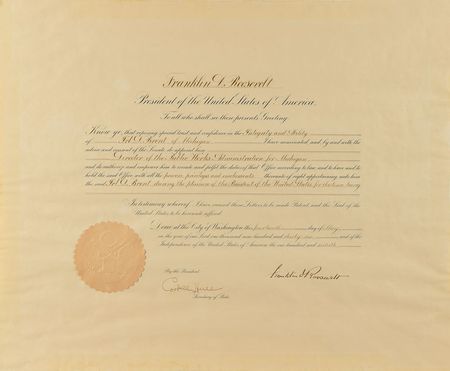 Franklin D. Roosevelt
President of the United States of America.
To all who shall see these presents, Greeting:
Know ye, that reposing special trust and confidence in the Integrity and Ability
of D. Brent, of Michigan I have nominated, and, by and with the
advice and consent of the Senate, do appoint him
Director of the Public Works Administration for Michigan
and do authorize and empower him to execute and fulfil the duties of that Office according to law, and to have and to
hold the said Office, with all the powers, privileges and emoluments thereunto of right appertaining unto him
the said D. Brent, during the pleasure of the President of the United States for the time being
In testimony whereof, I have caused these Letters to be made Patent, and the Seal of the
United States to be hereunto affixed.
Done at the City of Washington this day of May
in the year of our Lord one thousand nine hundred and thirty and of the
Independence of the United States of America the one hundred and sixtieth
By the President:
Franklin D Roosevelt
Cordell Hull
Secretary of State.